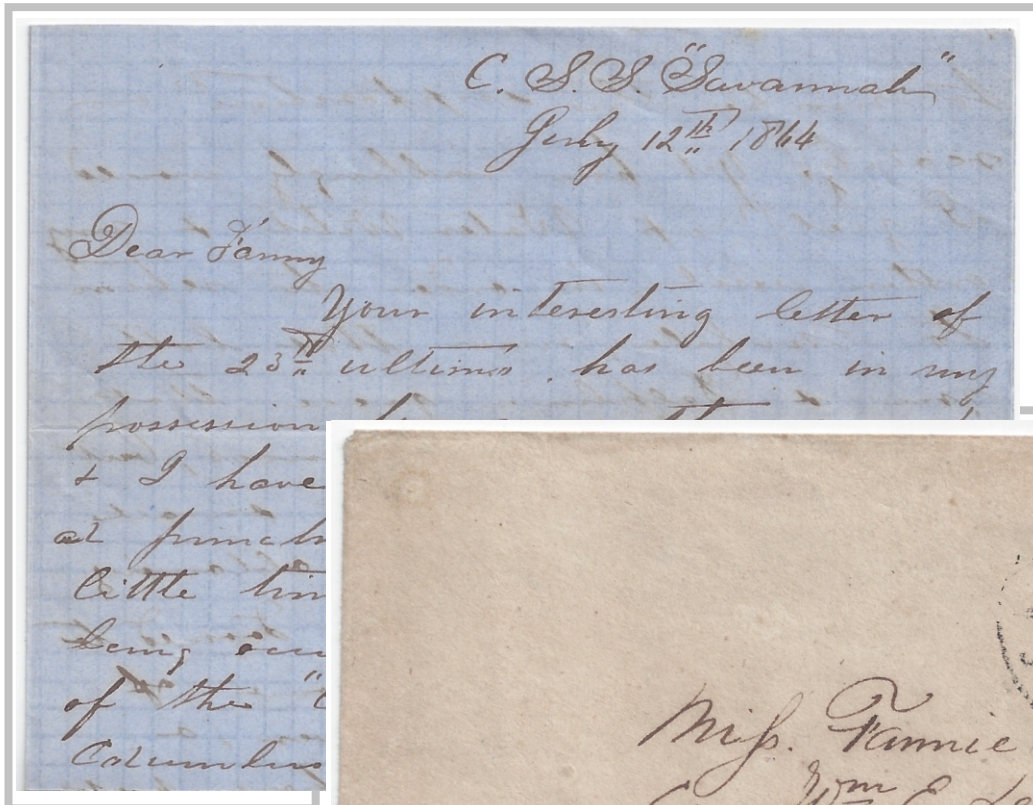 C. S. S. "Savannah"
July 12th 1864
Dear Fanny
Your interesting letter of
the 23rd ultimo, has been in my
possession
& I have
at
little
being
of the
Columbus
Miss. Fannie
Wm E.